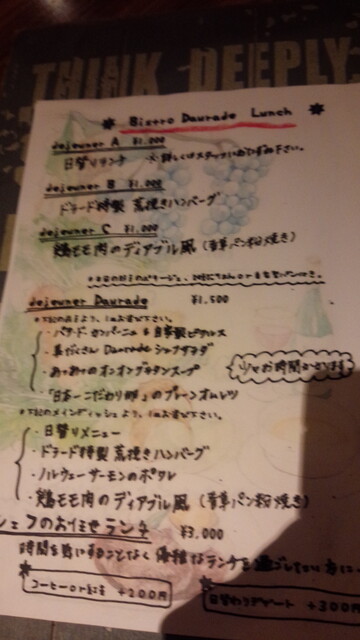 THINK DEEPLY
* Bistro Daurade Lunch *
dejeuner A ¥1.000
日替りランチ ※詳しくはスタッフにおたずね下さい。
dejeuner B ¥1.000
ドラード特製 荒挽きハンバーグ
dejeuner C ¥1.000
鶏モモ肉のディアブル風 (香草パン粉焼き)
dejeuner Daurade ¥1.500
・パテ・ド・カンパーニュ & 自家製ピクルス
Daurade シェフサラダ
・あつあつのオニオングラタンスープ
少々お時間かかります
・「日本一こだわり卵」のプレーンオムレツ
※下記のメインディッシュより、1品お選び下さい。
・日替りメニュー
・ドラード特製 荒挽きハンバーグ
・ノルウェーサーモンのポワレ
・鶏モモ肉のディアブル風 (香草パン粉焼き)
シェフのお任せランチ ¥3.000
時間を気にすることなく 優雅なランチを過ごしたい方に
コーヒー or 紅茶 +200円
日替わりデザート +300円